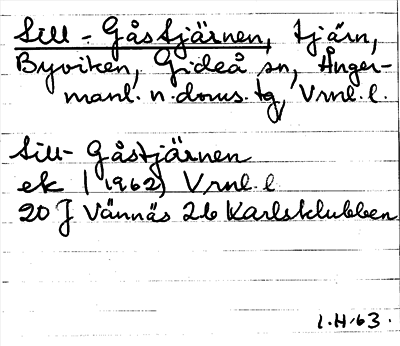 Sill-Gåstjärnen, tjärn,
Byviken, Gideå sn, Ånger-
manl. n. doms. tg, Vrnl. l.
Sill-Gåstjärnen
ek (1962) Vrnl. l
20 J Vännäs 2b Karlsklubben
l.H.63.